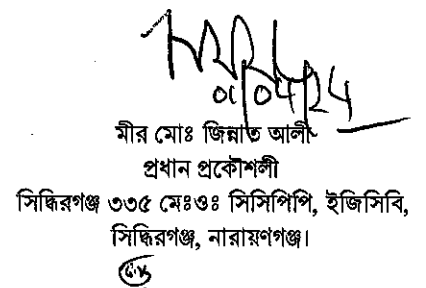 01/04/24
মীর মোঃ জিন্নাত আলী
প্রধান প্রকৌশলী
সিদ্ধিরগঞ্জ ৩৩৫ মেঃওঃ সিসিপিপি, ইজিসিবি,
সিদ্ধিরগঞ্জ, নারায়ণগঞ্জ।